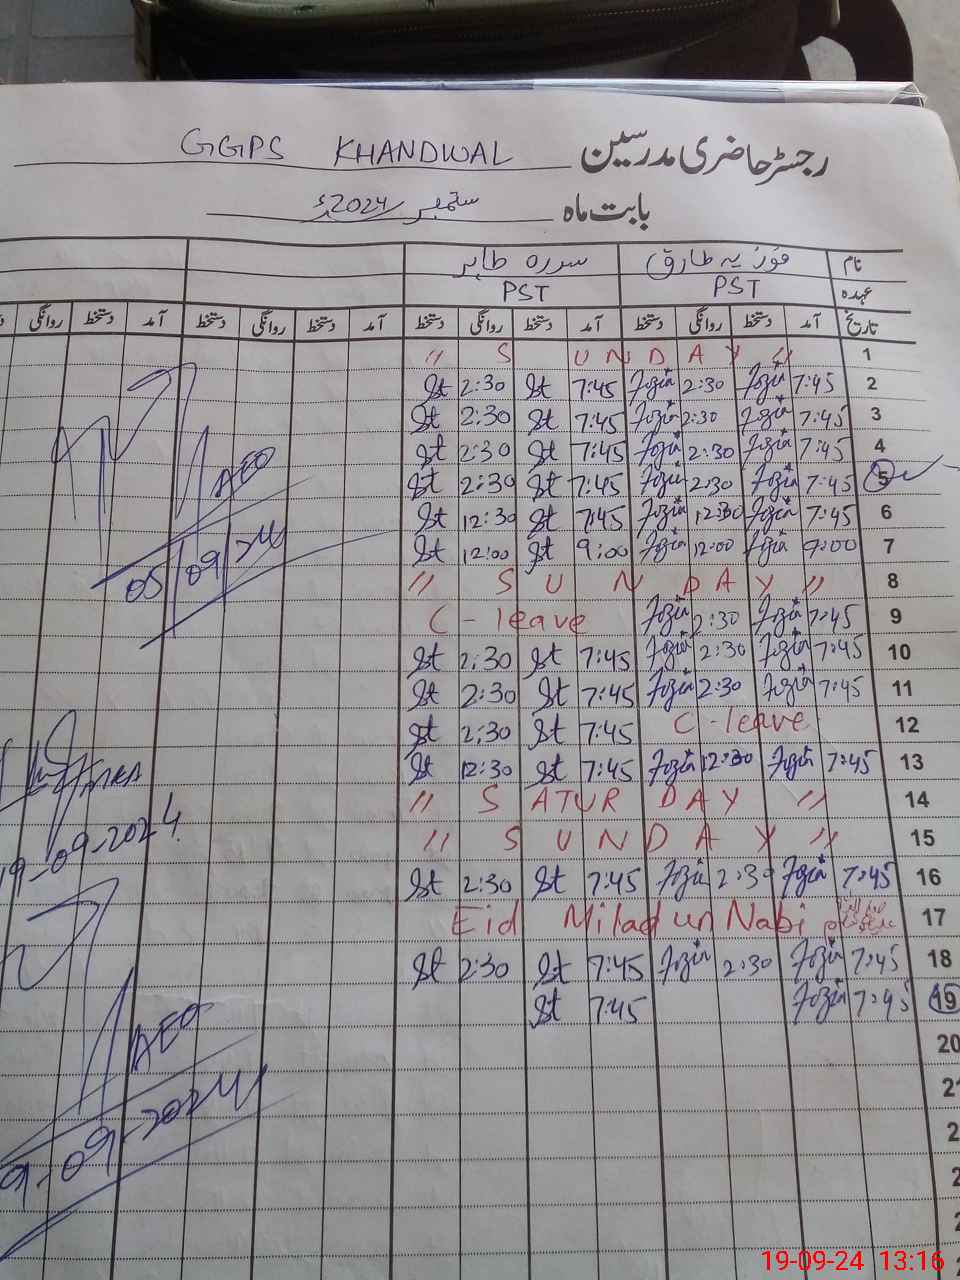 GGPS KHANDWAL رجسٹر حاضری مدرسین
بابت ماه ستمبر 2024ء
نام فوزیہ طارق سدرہ طاہر
عہدہ PST PST
تاریخ آمد دستخط روانگی دستخط آمد دستخط روانگی دستخط آمد دستخط روانگی دستخط آمد دستخط روانگی
1 " SUNDAY "
2 7:45 Fozia 2:30 Fozia 7:45 St 2:30 St
3 7:45 Fozia 2:30 Fozia 7:45 St 2:30 St
4 7:45 Fozia 2:30 Fozia 7:45 St 2:30 St
5 7:45 Fozia 2:30 Fozia 7:45 St 2:30 St
6 7:45 Fozia 12:30 Fozia 7:45 St 12:30 St
7 9:00 Fozia 12:00 Fozia 9:00 St 12:00 St
8 " SUNDAY "
9 7:45 Fozia 2:30 Fozia C-leave
10 7:45 Fozia 2:30 Fozia 7:45 St 2:30 St
11 7:45 Fozia 2:30 Fozia 7:45 St 2:30 St
12 C-leave 7:45 St 2:30 St
13 7:45 Fozia 12:30 Fozia 7:45 St 12:30 St
14 " SATURDAY "
15 " SUNDAY "
16 7:45 Fozia 2:30 Fozia 7:45 St 2:30 St
17 Eid Milad un Nabi
18 7:45 Fozia 2:30 Fozia 7:45 St 2:30 St
19 7:45 Fozia 7:45 St
20
AEO
05/09/24
19-09-2024
AEO
9-09-2024
19-09-24 13:16